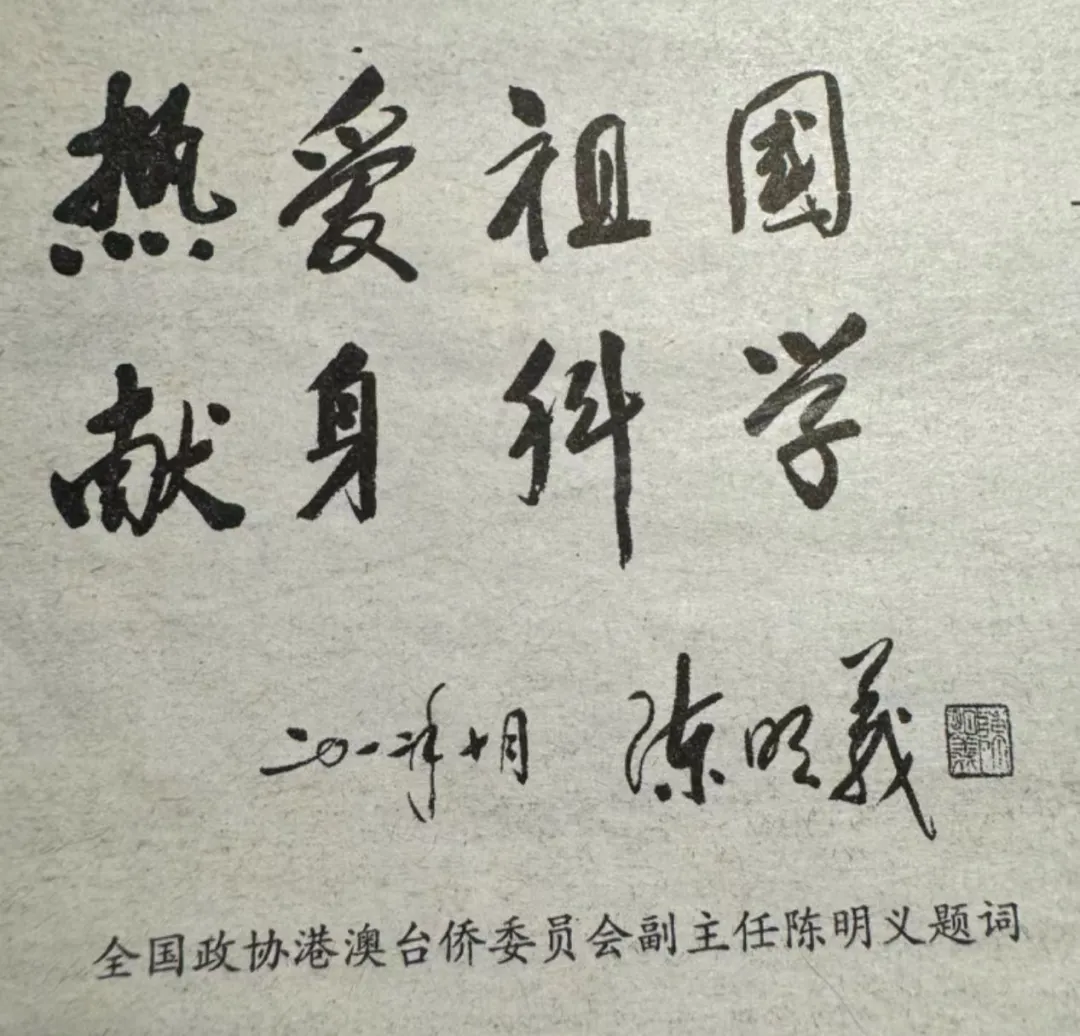 热爱祖国
献身科学
二〇一二年十月 陈明義
全国政协港澳台侨委员会副主任陈明义题词